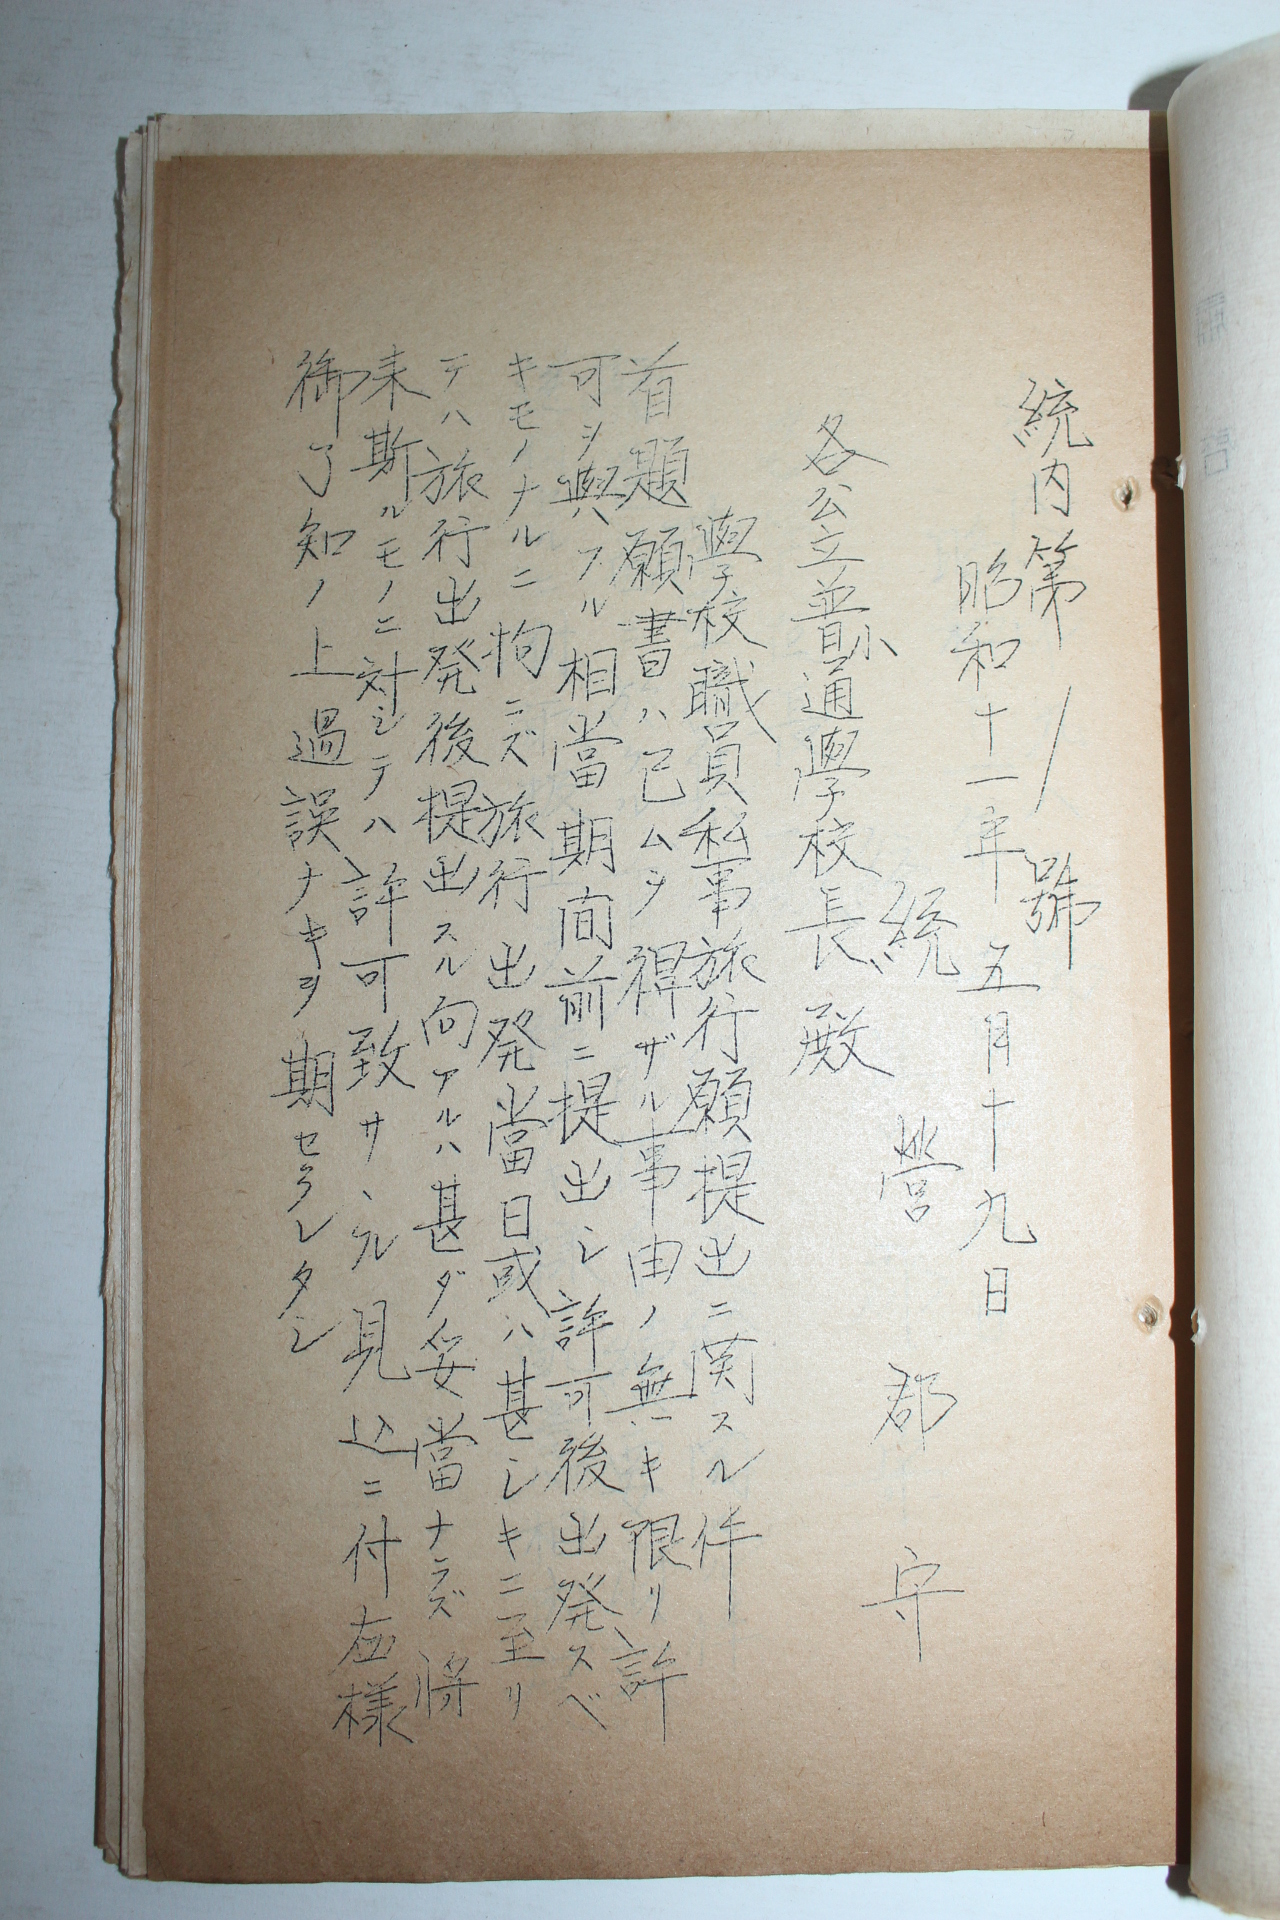 統内第 / 號
昭和十一年五月十九日
統營郡守
各公立普小通學校長殿
學校職員私事旅行願提出ニ関スル件
首題願書ハ已ムヲ得ザル事由ノ無キ限リ許
可ヲ與ハフル相當期間前ニ提出シ許可後出発スベ
キモノナルニ拘ニズ旅行出発當日或ハ甚シキニ至リ
テハ旅行出発後提出スル向アルハ甚ダ妥當ナラズ将
来斯ルモノニ対シテハ許可致サヽル見込ニ付右様
御了知ノ上過誤ナキヲ期セラレタシ